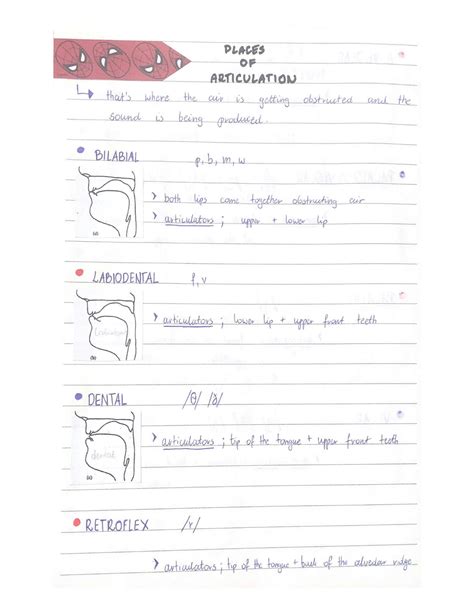 PLACES
OF
ARTICULATION
↳ that's where the air is getting obstructed and the
sound is being produced.
• BILABIAL p, b, m, w
> both lips come together obstructing air
> articulators ; upper + lower lip
(a)
• LABIODENTAL f, v
> articulators ; lower lip + upper front teeth
(b)
• DENTAL /θ/ /ð/
> articulators ; tip of the tongue + upper front teeth
dental
• RETROFLEX /r/
> articulators ; tip of the tongue + back of the alveolar ridge